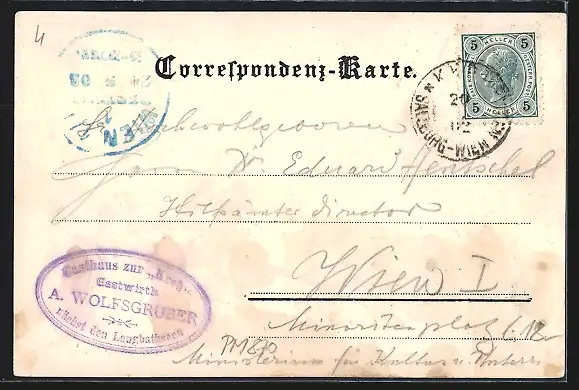 4
Correspondenz-Karte.
5 HELLER 5
5 HELLER 5
SALZBURG-WIEN
Hochwohlgeboren
Herrn Dr. Eduard Hentschel
Hilfsämter director
Wien I
Minoritenplatz
Ministerium für Kultus u. Unterr.
Gasthaus zur
Gastwirth
A. WOLFSGRUBER
nächst den Langbathseen